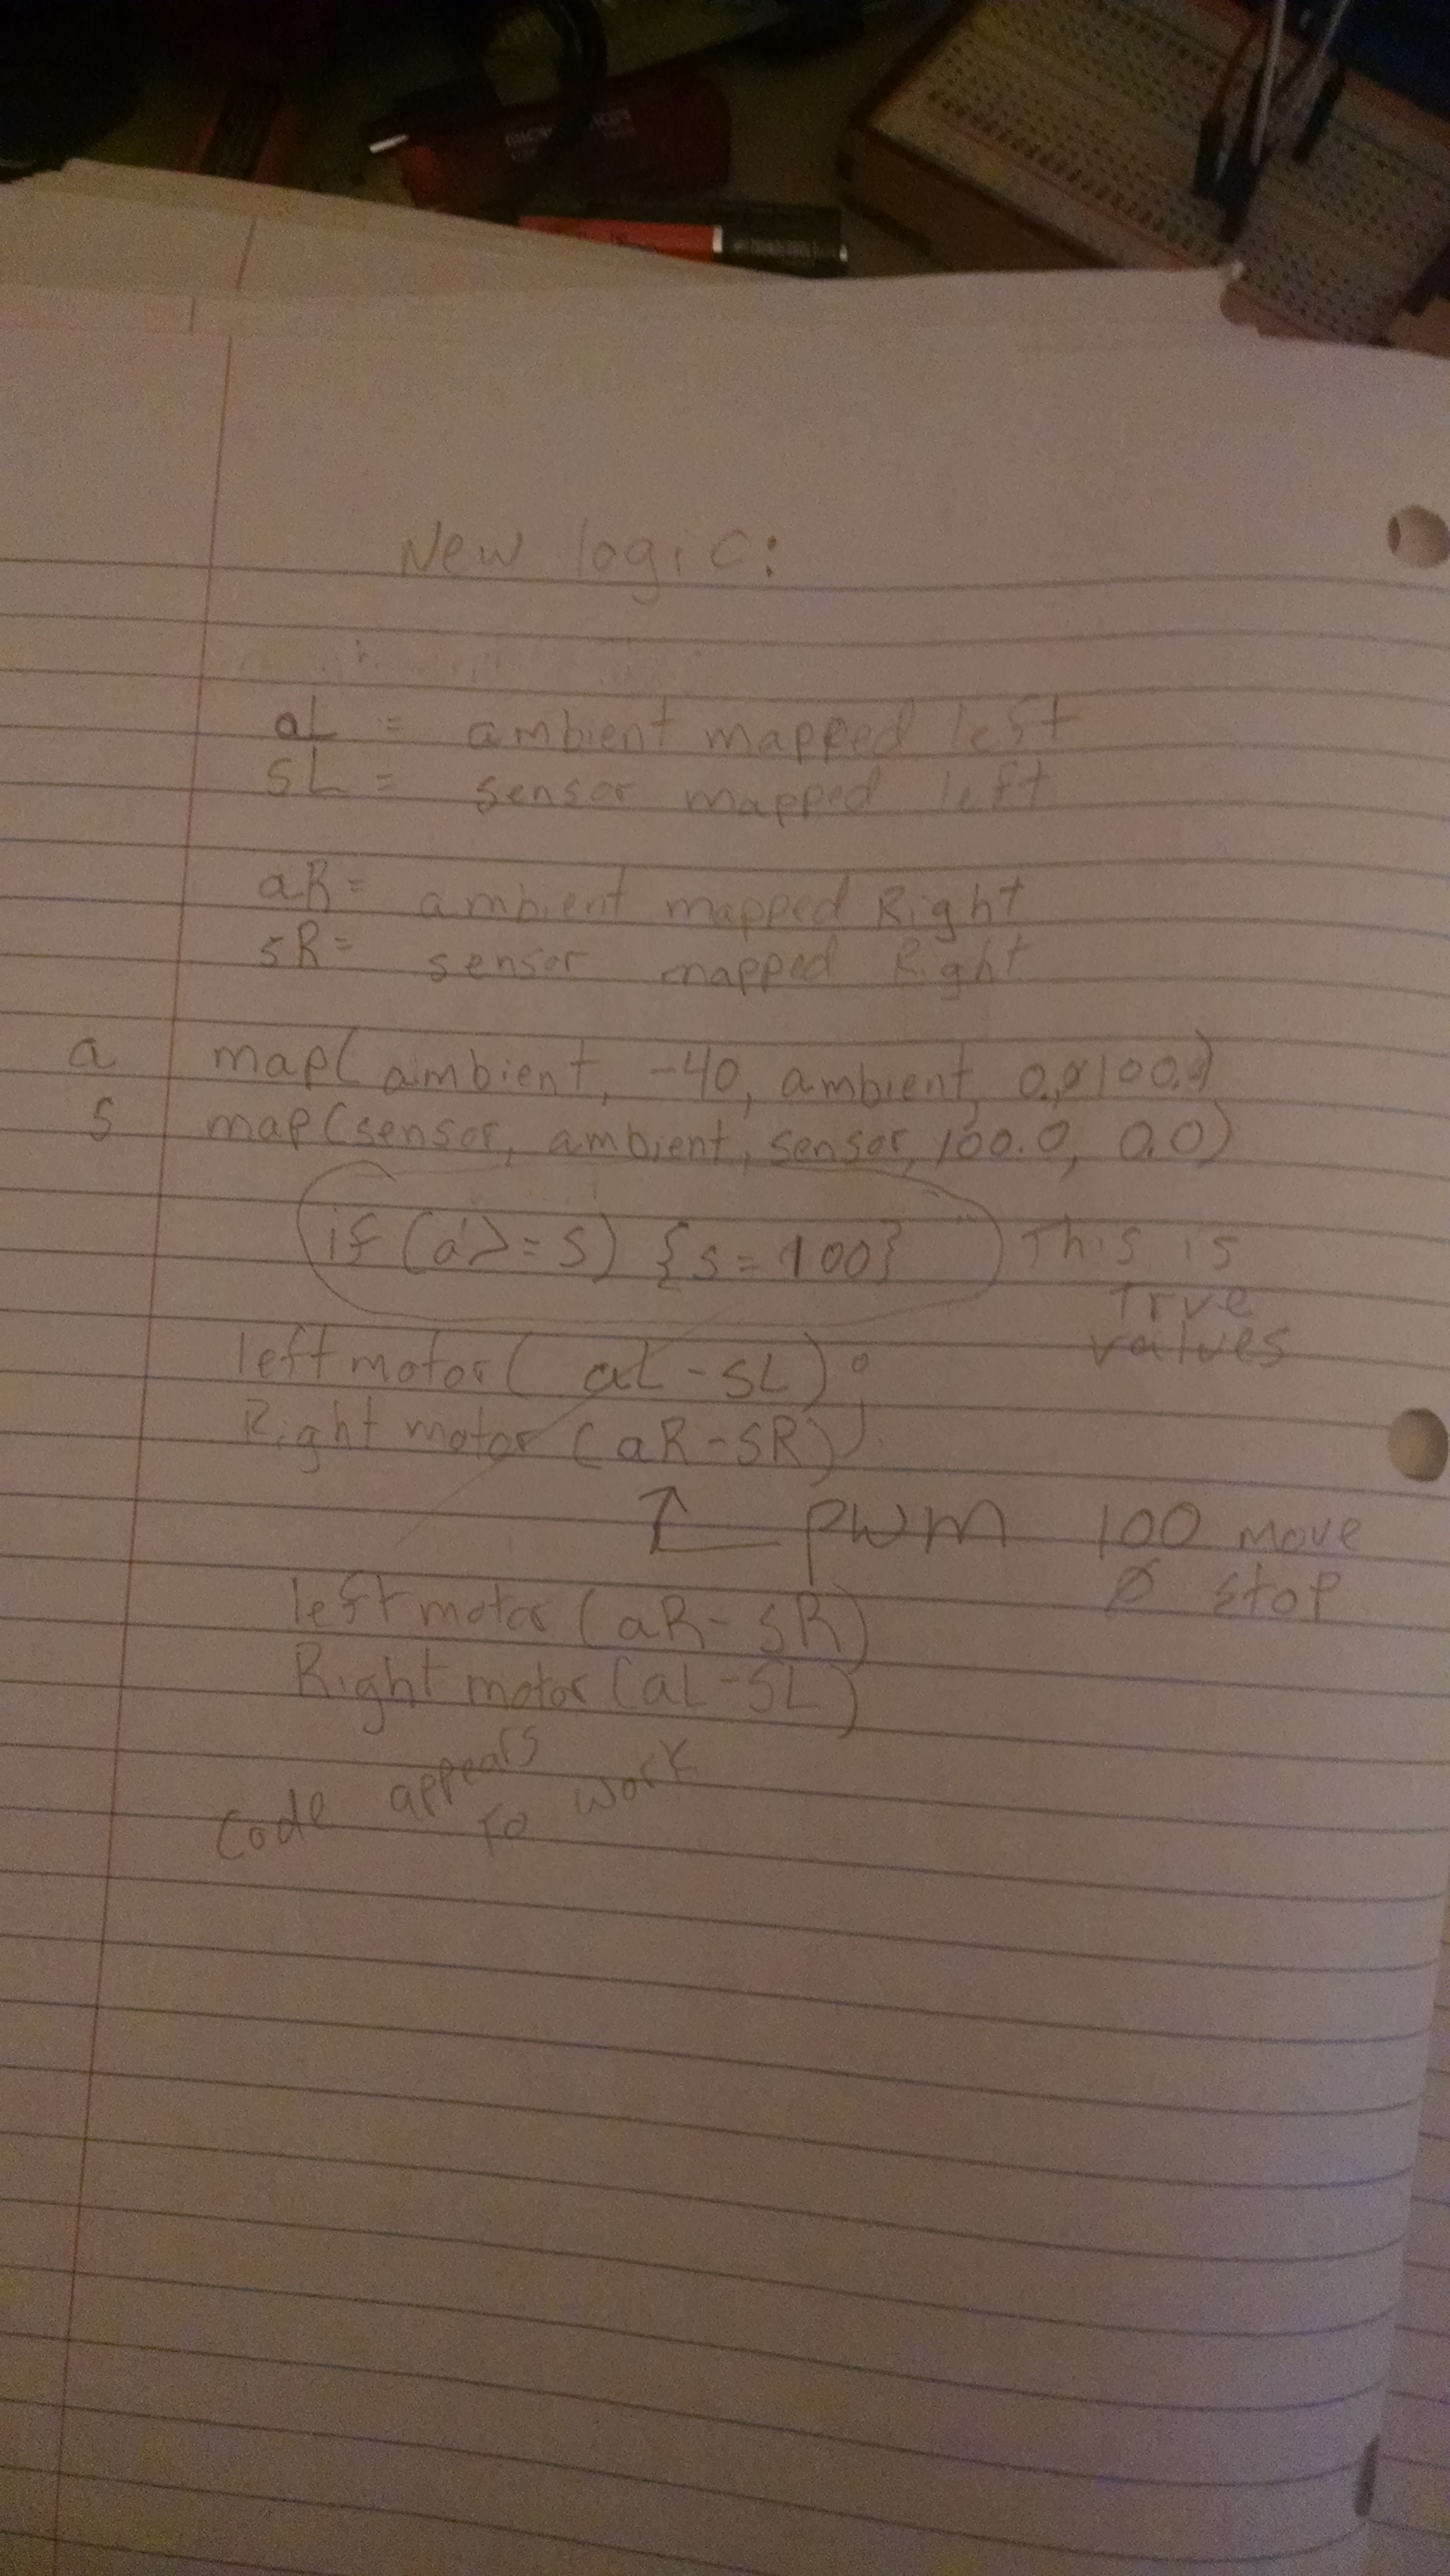 New logic:
aL = ambient mapped left
SL = sensor mapped left
aR = ambient mapped Right
SR = sensor mapped Right
a map(ambient, -40, ambient, 0.0, 100.0)
S map(sensor, ambient, sensor, 100.0, 0.0)
if (a >= S) {S = 100} This is
True
values
left motor( aL - SL);
Right motor (aR - SR);
PWM 100 move
Ø stop
left motor (aR - SR)
Right motor (aL - SL)
Code appears
To work